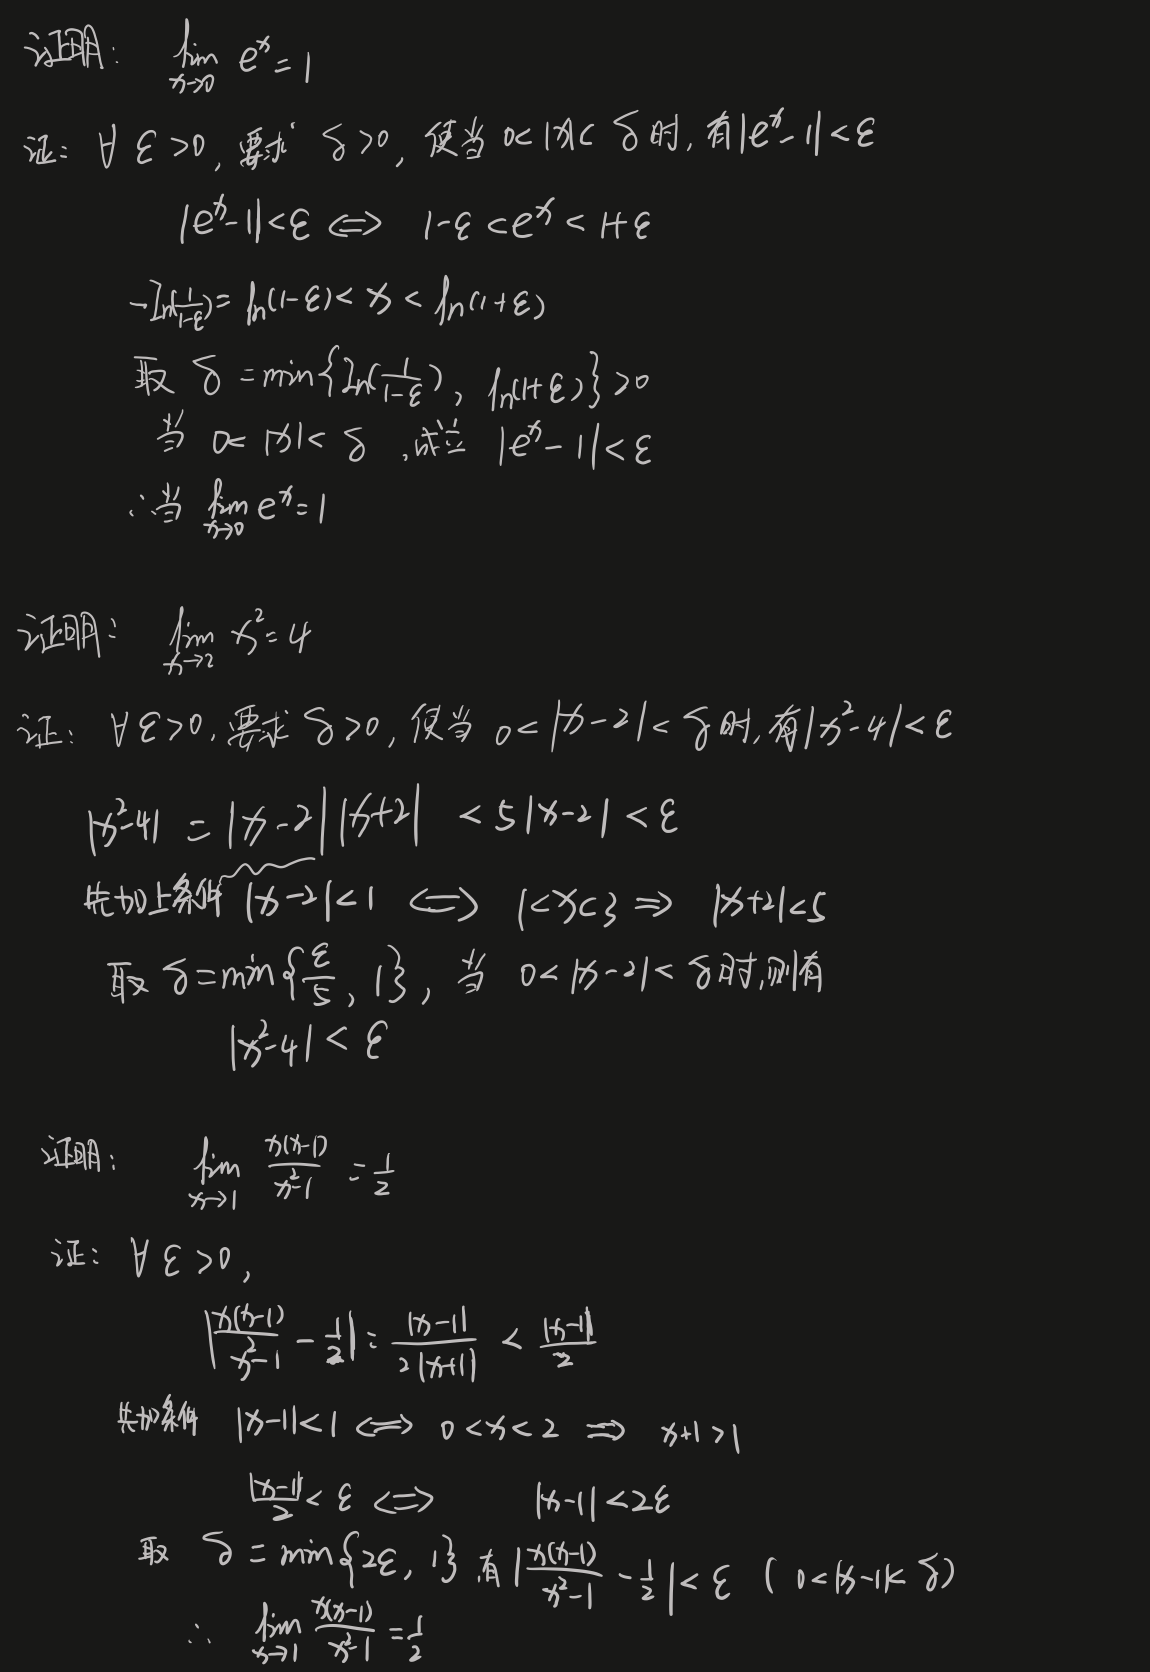 证明: lim x→0 e^x = 1
证: ∀ ε > 0, 要求 δ > 0, 使当 0 < |x| < δ 时, 有 |e^x - 1| < ε
|e^x - 1| < ε ⟺ 1 - ε < e^x < 1 + ε
-ln(1/(1-ε)) = ln(1-ε) < x < ln(1+ε)
取 δ = min{ln(1/(1-ε)), ln(1+ε)} > 0
当 0 < |x| < δ, 成立 |e^x - 1| < ε
∴当 lim x→0 e^x = 1
证明: lim x→2 x^2 = 4
证: ∀ ε > 0, 要求 δ > 0, 使当 0 < |x - 2| < δ 时, 有 |x^2 - 4| < ε
|x^2 - 4| = |x - 2| |x + 2| < 5 |x - 2| < ε
先加上条件 |x - 2| < 1 ⟺ 1 < x < 3 ⇒ |x + 2| < 5
取 δ = min{ε/5, 1}, 当 0 < |x - 2| < δ 时, 则有
|x^2 - 4| < ε
证明: lim x→1 x(x-1)/(x^2-1) = 1/2
证: ∀ ε > 0,
|x(x-1)/(x^2-1) - 1/2| = |x-1|/(2|x+1|) < |x-1|/2
先加条件 |x - 1| < 1 ⟺ 0 < x < 2 ⇒ x + 1 > 1
|x-1|/2 < ε ⟺ |x - 1| < 2ε
取 δ = min{2ε, 1} 有 |x(x-1)/(x^2-1) - 1/2| < ε ( 0 < |x - 1| < δ)
∴ lim x→1 x(x-1)/(x^2-1) = 1/2